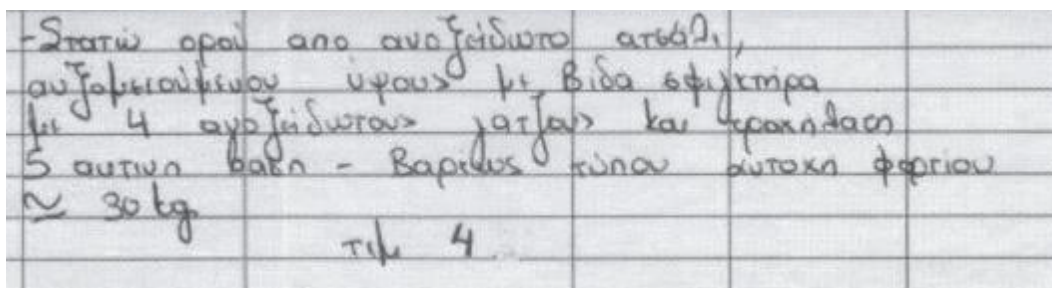 -Στατώ ορού απο ανοξείδωτο ατσάλι,
αυξομειούμενου ύψους με βίδα σφιγκτήρα
με 4 ανοξείδωτους γάτζους και τροχήλατη
5 ακτινη βαση - Βαρέως τύπου αντοχη φορτίου
≃ 30 kg.
τεμ 4